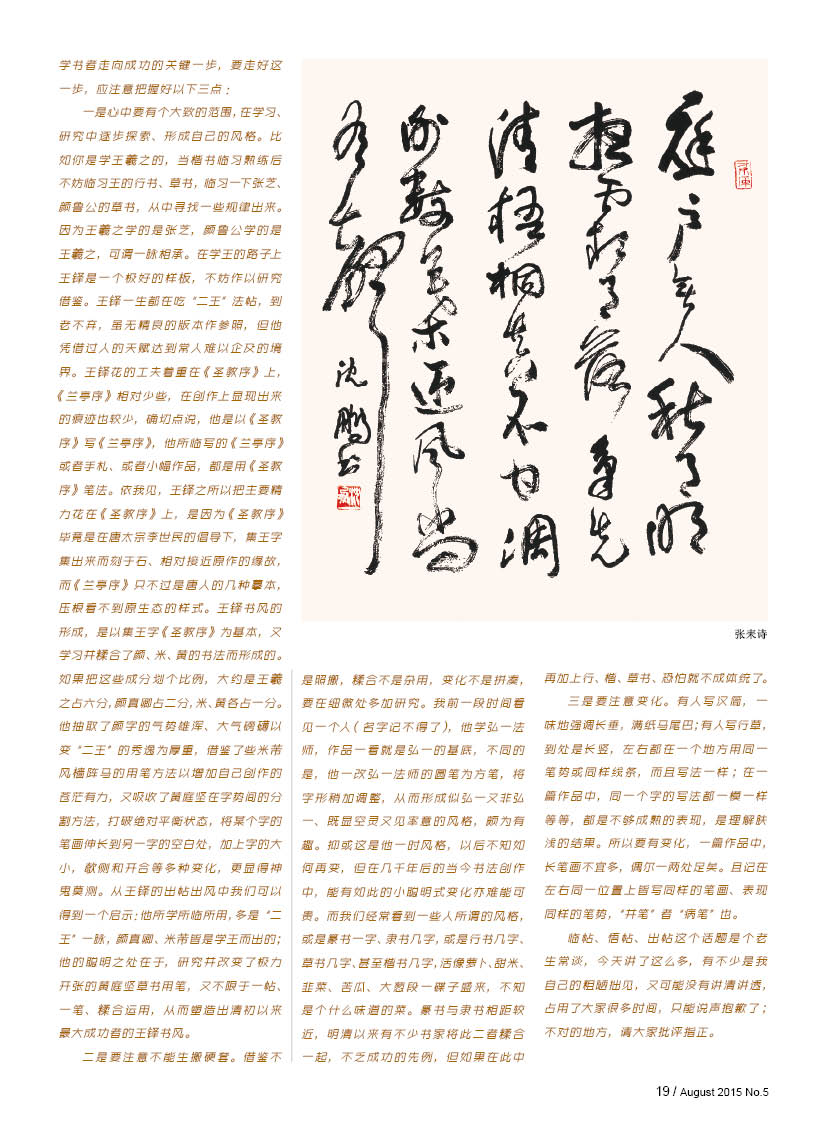 学书者走向成功的关键一步，要走好这
一步，应注意把握好以下三点：
一是心中要有个大致的范围，在学习、
研究中逐步探索、形成自己的风格。比
如你是学王羲之的，当楷书临习熟练后
不妨临习王的行书、草书，临习一下张芝、
颜鲁公的草书，从中寻找一些规律出来。
因为王羲之学的是张芝，颜鲁公学的是
王羲之，可谓一脉相承。在学王的路子上
王铎是一个极好的样板，不妨作以研究
借鉴。王铎一生都在吃“二王”法帖，到
老不弃，虽无精良的版本作参照，但他
凭借过人的天赋达到常人难以企及的境
界。王铎花的工夫着重在《圣教序》上，
《兰亭序》相对少些，在创作上显现出来
的痕迹也较少，确切点说，他是以《圣教
序》写《兰亭序》，他所临写的《兰亭序》
或者手札、或者小幅作品，都是用《圣教
序》笔法。依我见，王铎之所以把主要精
力花在《圣教序》上，是因为《圣教序》
毕竟是在唐太宗李世民的倡导下，集王字
集出来而刻于石、相对接近原作的缘故，
而《兰亭序》只不过是唐人的几种摹本，
压根看不到原生态的样式。王铎书风的
形成，是以集王字《圣教序》为基本，又
学习并糅合了颜、米、黄的书法而形成的。
如果把这些成分划个比例，大约是王羲
之占六分，颜真卿占二分，米、黄各占一分。
他抽取了颜字的气势雄浑、大气磅礴以
变“二王”的秀逸为厚重，借鉴了些米芾
风樯阵马的用笔方法以增加自己创作的
苍茫有力，又吸收了黄庭坚在字势间的分
割方法，打破绝对平衡状态，将某个字的
笔画伸长到另一字的空白处，加上字的大
小，欹侧和开合等多种变化，更显得神
鬼莫测。从王铎的出帖出风中我们可以
得到一个启示：他所学所临所用，多是“二
王”一脉，颜真卿、米芾皆是学王而出的；
他的聪明之处在于，研究并改变了极力
开张的黄庭坚草书用笔，又不限于一帖、
一笔、糅合运用，从而塑造出清初以来
最大成功者的王铎书风。
二是要注意不能生搬硬套。借鉴不
庭户无人秋月明
夜霜欲落气先
清梧桐真不甘凋
谢数叶迎风尚
有声
沈鹏书
张耒诗
是照搬，糅合不是杂用，变化不是拼凑，
要在细微处多加研究。我前一段时间看
见一个人（名字记不得了），他学弘一法
师，作品一看就是弘一的基底，不同的
是，他一改弘一法师的圆笔为方笔，将
字形稍加调整，从而形成似弘一又非弘
一、既显空灵又见率意的风格，颇为有
趣。抑或这是他一时风格，以后不知如
何再变，但在几千年后的当今书法创作
中，能有如此的小聪明式变化亦难能可
贵。而我们经常看到一些人所谓的风格，
或是篆书一字、隶书几字，或是行书几字、
草书几字、甚至楷书几字，活像萝卜、甜米、
韭菜、苦瓜、大葱段一碟子盛来，不知
是个什么味道的菜。篆书与隶书相距较
近，明清以来有不少书家将此二者糅合
一起，不乏成功的先例，但如果在此中
再加上行、楷、草书、恐怕就不成体统了。
三是要注意变化。有人写汉简，一
味地强调长垂，满纸马尾巴；有人写行草，
到处是长竖，左右都在一个地方用同一
笔势或同样线条，而且写法一样；在一
篇作品中，同一个字的写法都一模一样
等等，都是不够成熟的表现，是理解肤
浅的结果。所以要有变化，一篇作品中，
长笔画不宜多，偶尔一两处足矣。且记在
左右同一位置上皆写同样的笔画、表现
同样的笔势，“并笔”者“病笔”也。
临帖、悟帖、出帖这个话题是个老
生常谈，今天讲了这么多，有不少是我
自己的粗陋拙见，又可能没有讲清讲透，
占用了大家很多时间，只能说声抱歉了；
不对的地方，请大家批评指正。
19 / August 2015 No.5